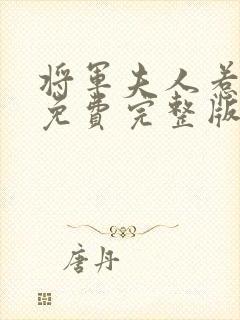 将军夫人惹
免费完整版
唐丹